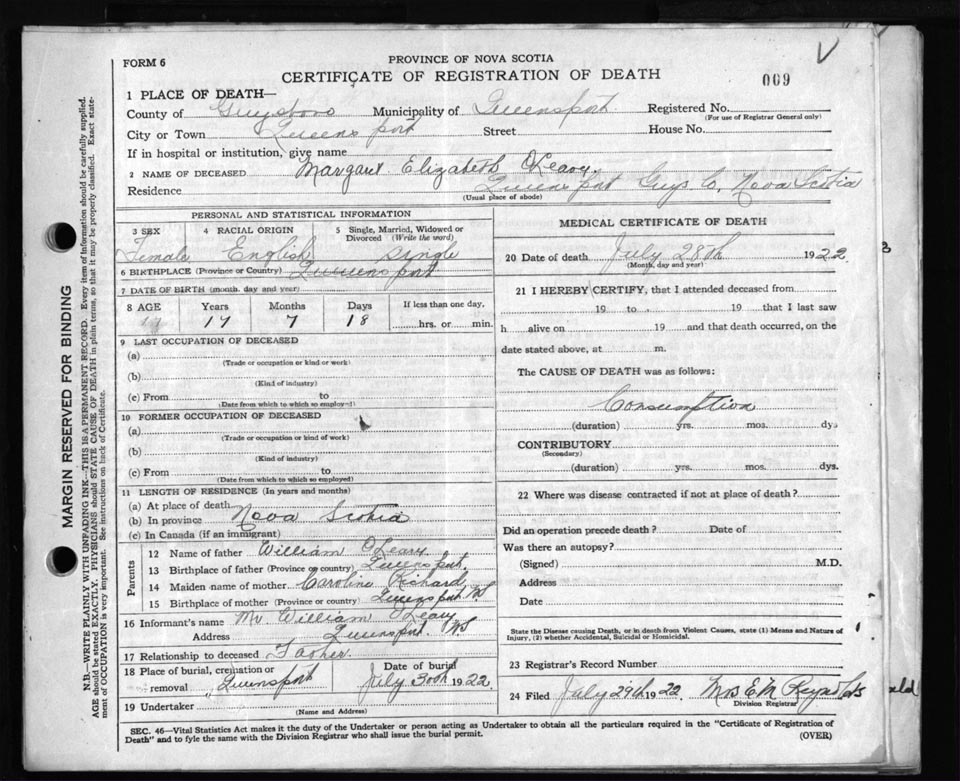 FORM 6
PROVINCE OF NOVA SCOTIA
CERTIFICATE OF REGISTRATION OF DEATH
009
1 PLACE OF DEATH—
County of Guysboro Municipality of Queensport Registered No.
(For use of Registrar General only)
City or Town Queens port Street House No.
If in hospital or institution, give name
2 NAME OF DECEASED Margaret Elizabeth O'Leary
Residence Queens port Guys Co, Nova Scotia
(Usual place of abode)
MARGIN RESERVED FOR BINDING
N.B.—WRITE PLAINLY WITH UNFADING INK—THIS IS A PERMANENT RECORD. Every item of information should be carefully supplied.
AGE should be stated EXACTLY. PHYSICIANS should STATE CAUSE OF DEATH in plain terms, so that it may be properly classified. Exact state-
ment of OCCUPATION is very important. See instructions on back of Certificate.
PERSONAL AND STATISTICAL INFORMATION
3 SEX 4 RACIAL ORIGIN 5 Single, Married, Widowed or
Divorced (Write the word)
Female English single
6 BIRTHPLACE (Province or Country) Queensport
7 DATE OF BIRTH (month, day and year)
8 AGE Years Months Days If less than one day,
17 7 18 hrs. or min.
9 LAST OCCUPATION OF DECEASED
(a)
(Trade or occupation or kind or work)
(b)
(Kind of industry)
(c) From to
(Date from which to which so employed)
10 FORMER OCCUPATION OF DECEASED
(a)
(Trade or occupation or kind of work)
(b)
(Kind of industry)
(c) From to
(Date from which to which so employed)
11 LENGTH OF RESIDENCE (In years and months)
(a) At place of death
(b) In province Nova Scotia
(c) In Canada (if an immigrant)
Parents
12 Name of father William O'Leary
13 Birthplace of father (Province or country) Queensport
14 Maiden name of mother Caroline Richard
15 Birthplace of mother (Province or country) Queensport NS
16 Informant's name Mr. William O'Leary
Address Queensport NS
17 Relationship to deceased Father
18 Place of burial, cremation or
removal Queensport
Date of burial
July 30th 1922
19 Undertaker
(Name and Address)
MEDICAL CERTIFICATE OF DEATH
20 Date of death July 28th 1922
(Month, day and year)
21 I HEREBY CERTIFY, that I attended deceased from
19 to 19 that I last saw
h alive on 19 and that death occurred, on the
date stated above, at m.
The CAUSE OF DEATH was as follows:
Consumption
(duration) yrs. mos. dys.
CONTRIBUTORY
(Secondary)
(duration) yrs. mos. dys.
22 Where was disease contracted if not at place of death?
Did an operation precede death? Date of
Was there an autopsy?
(Signed) M.D.
Address
Date
State the Disease causing Death, or in death from Violent Causes, state (1) Means and Nature of
Injury, (2) whether Accidental, Suicidal or Homicidal.
23 Registrar's Record Number
24 Filed July 29th 1922 Mrs E M Reynolds
Division Registrar
SEC. 46—Vital Statistics Act makes it the duty of the Undertaker or person acting as Undertaker to obtain all the particulars required in the "Certificate of Registration of
Death" and to fyle the same with the Division Registrar who shall issue the burial permit.
(OVER)